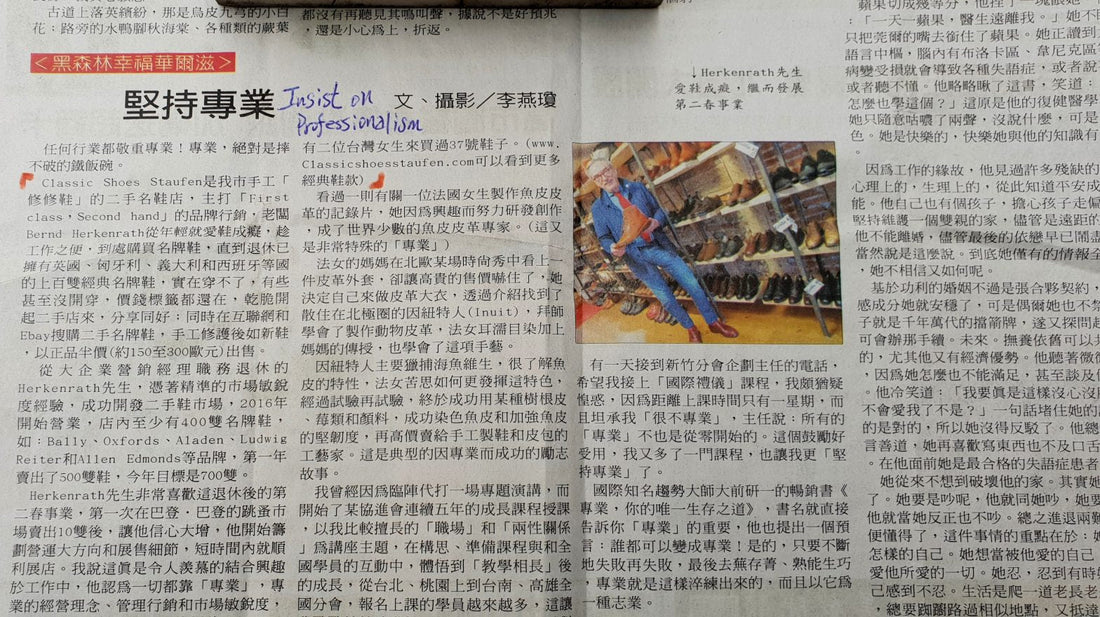 古道上落英繽紛，那是烏皮九芎的小白
花；路旁的水鴨腳秋海棠、各種類的蕨葉
都沒有再聽見其鳴叫聲，據說不是好預兆
，還是小心爲上，折返。
＜黑森林幸福華爾滋＞
堅持專業
Insist on
Professionalism
文、攝影／李燕瓊
任何行業都敬重專業！專業，絕對是摔
不破的鐵飯碗。
Classic Shoes Staufen是我市手工「
修修鞋」的二手名鞋店，主打「First
class，Second hand」的品牌行銷，老闆
Bernd Herkenrath從年輕就愛鞋成癡，趁
工作之便，到處購買名牌鞋，直到退休已
擁有英國、匈牙利、義大利和西班牙等國
的上百雙經典名牌鞋，實在穿不了，有些
甚至沒開穿，價錢標籤都還在，乾脆開
起二手店來，分享同好；同時在互聯網和
Ebay搜購二手名牌鞋，手工修護後如新鞋
，以正品半價(約150至300歐元)出售。
從大企業營銷經理職務退休的
Herkenrath先生，憑著精準的市場敏銳
度經驗，成功開發二手鞋市場，2016年
開始營業，店內至少有400雙名牌鞋，
如：Bally、Oxfords、Aladen、Ludwig
Reiter和Allen Edmonds等品牌，第一年
賣出了500雙鞋，今年目標是700雙。
Herkenrath先生非常喜歡這退休後的第
二春事業，第一次在巴登．巴登的跳蚤市
場賣出10雙後，讓他信心大增，他開始籌
劃營運大方向和展售細節，短時間內就順
利展店。我說這眞是令人羨慕的結合興趣
於工作中，他認爲一切都靠「專業」，專
業的經營理念、管理行銷和市場敏銳度，
有二位台灣女生來買過37號鞋子。(www.
Classicshoesstaufen.com可以看到更多
經典鞋款)
看過一則有關一位法國女生製作魚皮皮
革的記錄片，她因爲興趣而努力研發創作
，成了世界少數的魚皮皮革專家。（這又
是非常特殊的「專業」）
法女的媽媽在北歐某場時尚秀中看上一
件皮革外套，卻讓高貴的售價嚇住了，她
決定自己來做皮革大衣，透過介紹找到了
散住在北極圈的因紐特人(Inuit)，拜師
學會了製作動物皮革，法女耳濡目染加上
媽媽的傳授，也學會了這項手藝。
因紐特人主要獵捕海魚維生，很了解魚
皮的特性，法女苦思如何更發揮這特色，
經過試驗再試驗，終於成功用某種樹根皮
、莓類和顏料，成功染色魚皮和加強魚皮
的堅韌度，再高價賣給手工製鞋和皮包的
工藝家。這是典型的因專業而成功的勵志
故事。
我曾經因爲臨陣代打一場專題演講，而
開始了某協進會連續五年的成長課程授課
，以我比較擅長的「職場」和「兩性關係
」爲講座主題，在構思、準備課程與和全
國學員的互動中，體悟到「教學相長」後
的成長，從台北、桃園上到台南、高雄全
國分會，報名上課的學員越來越多，這讓
↓Herkenrath先生
愛鞋成癡，繼而發展
第二春事業
有一天接到新竹分會企劃主任的電話，
希望我接上「國際禮儀」課程，我頗猶疑
惶惑，因爲距離上課時間只有一星期，而
且坦承我「很不專業」，主任說：所有的
「專業」不也是從零開始的。這個鼓勵好
受用，我又多了一門課程，也讓我更「堅
持專業」了。
國際知名趨勢大師大前研一的暢銷書《
專業，你的唯一生存之道》，書名就直接
告訴你「專業」的重要，他也提出一個預
言：誰都可以變成專業！是的，只要不斷
地失敗再失敗，最後去蕪存菁、熟能生巧
，專業就是這樣淬鍊出來的，而且以它爲
一種志業。
：「一天一蘋果，醫生遠離我。」她不
只把莞爾的嘴去銜住了蘋果。她正讀到
語言中樞，腦內有布洛卡區、韋尼克區
病變受損就會導致各種失語症，或者說
或者聽不懂。他略略瞅了這書，笑道：
怎麼也學這個？」這原是他的復健醫學
她只隨意咕噥了兩聲，沒說什麼，可是
色。她是快樂的，快樂她與他的知識有
。
因爲工作的緣故，他見過許多殘缺的
心理上的，生理上的，從此知道平安成
能。他自己也有個孩子，擔心孩子走偏
堅持維護一個雙親的家，儘管是遠距的
他不能離婚，儘管最後的依戀早已鬧盡
當然說是這麼說。到底她僅有的情報全
，她不相信又如何呢。
基於功利的婚姻不過是張合夥契約，
感成分她就安穩了，可是偶爾她也不禁
子就是千年萬代的擋箭牌，遂又探問起
可會辦那手續。未來。撫養依舊可以共
的，尤其他又有經濟優勢。他聽著微微
，因爲她怎麼也不能滿足，甚至談及
。他冷笑道：「我要眞是這樣沒心沒
不會愛我了不是？」一句話堵住她的
的是對的，所以她沒得反駁了。他總
言善道，她再喜歡寫東西也不及口舌
。在他面前她是最合格的失語症患者
她從來不想到破壞他的家。其實她
了。她要是吵呢，他就同她吵，她要
他就當她反正也不吵。總之進退兩難
便懂得了，這件事情的重點在於：她
怎樣的自己。她想當被他愛的自己
愛他所愛的一切。她忍，忍到有時
己感到不忍。生活是爬一道老長老
，總要踟躕路過相似地點，又抵達